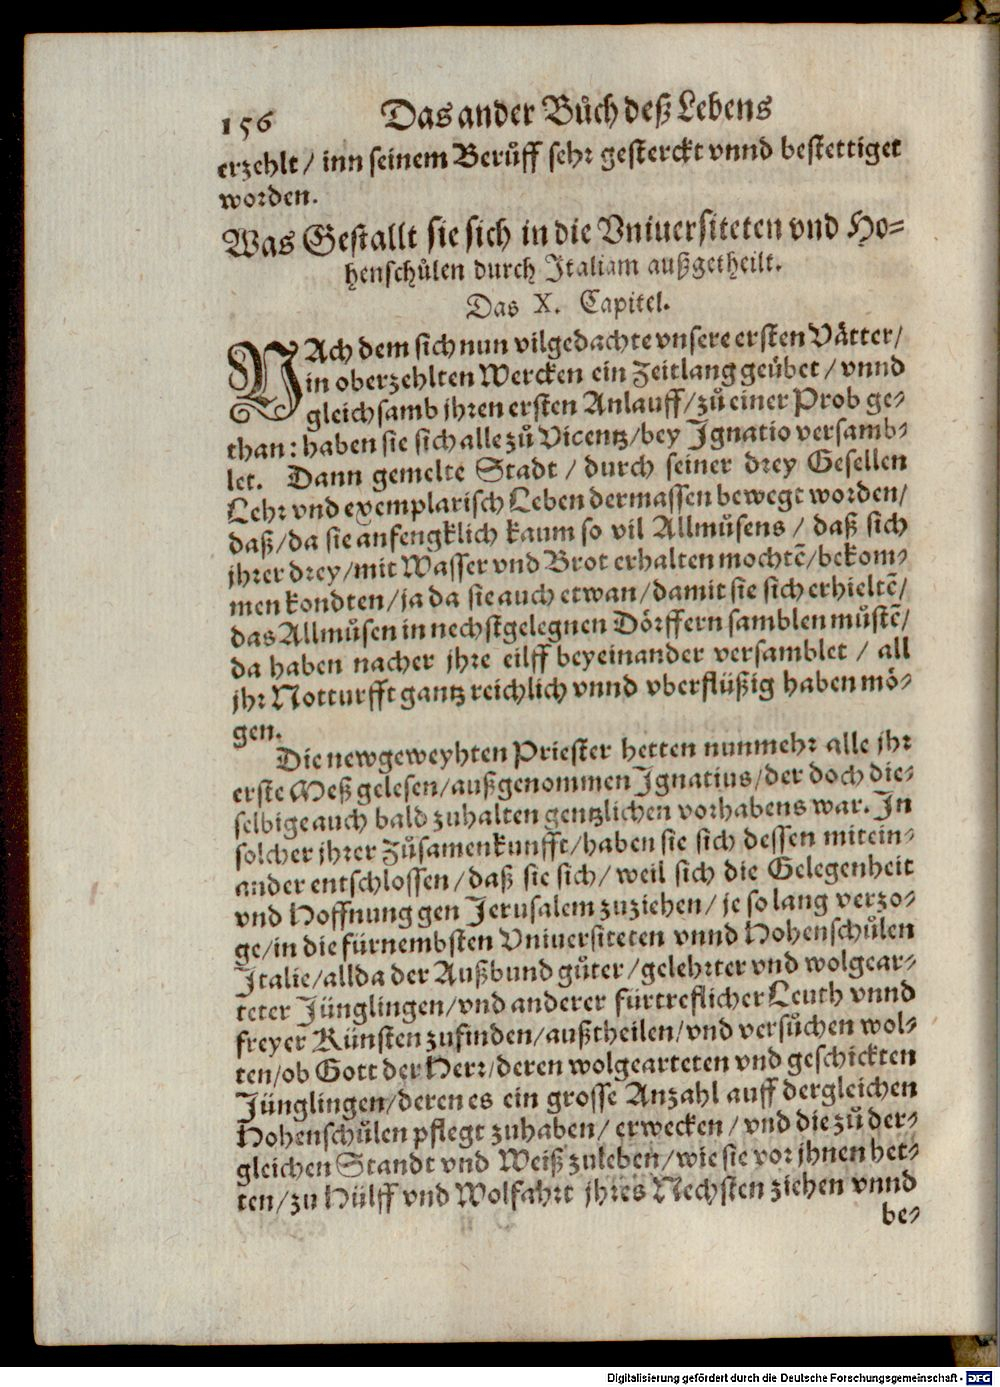 156 Das ander Bůch deß Lebens
erzehlt / inn seinem Berůff sehr gesterckt vnnd bestettiget
worden.
Was Gestallt sie sich in die Vniuersiteten vnd Ho-
henschůlen durch Italiam außgetheilt.
Das X. Capitel.
NAch dem sich nun vilgedachte vnsere ersten Vätter/
in oberzehlten Wercken ein Zeitlang geübet / vnnd
gleichsamb jhren ersten Anlauff/zů einer Prob ge-
than: haben sie sich alle zů Vicentz/bey Ignatio versamb-
let. Dann gemelte Stadt / durch seiner drey Gesellen
Lehr vnd exemplarisch Leben dermassen bewegt worden/
daß/da sie anfengklich kaum so vil Allmůsens / daß sich
jhrer drey/mit Wasser vnd Brot erhalten mochtē/bekom-
men kondten/ja da sie auch etwan/damit sie sich erhieltē/
das Allmůsen in nechstgelegnen Dörffern samblen můstē/
da haben nacher jhre eilff beyeinander versamblet / all
jhr Notturfft gantz reichlich vnnd vberflüßig haben mö-
gen.
Die newgeweyhten Priester hetten nunmehr alle jhr
erste Meß gelesen/außgenommen Ignatius/der doch die-
selbige auch bald zuhalten gentzlichen vorhabens war. In
solcher jhrer Zůsamenkunfft/haben sie sich dessen mitein-
ander entschlossen/daß sie sich/weil sich die Gelegenheit
vnd Hoffnung gen Jerusalem zuziehen/je so lang verzo-
ge/in die fürnembsten Vniuersiteten vnnd Hohenschůlen
Italie/allda der Außbund gůter/gelehrter vnd wolgear-
teter Jünglingen/vnd anderer fürtreflicher Leuth vnnd
freyer Künsten zufinden/außtheilen/vnd versůchen wol-
ten/ob Gott der Herr/deren wolgearteten vnd geschickten
Jünglingen/deren es ein grosse Anzahl auff dergleichen
Hohenschůlen pflegt zuhaben/ erwecken / vnd die zů der-
gleichen Standt vnd Weiß zuleben/wie sie vor jhnen het-
ten/zu Hülff vnd Wolfahrt jhres Nechsten ziehen vnnd
be-
Digitalisierung gefördert durch die Deutsche Forschungsgemeinschaft - DFG